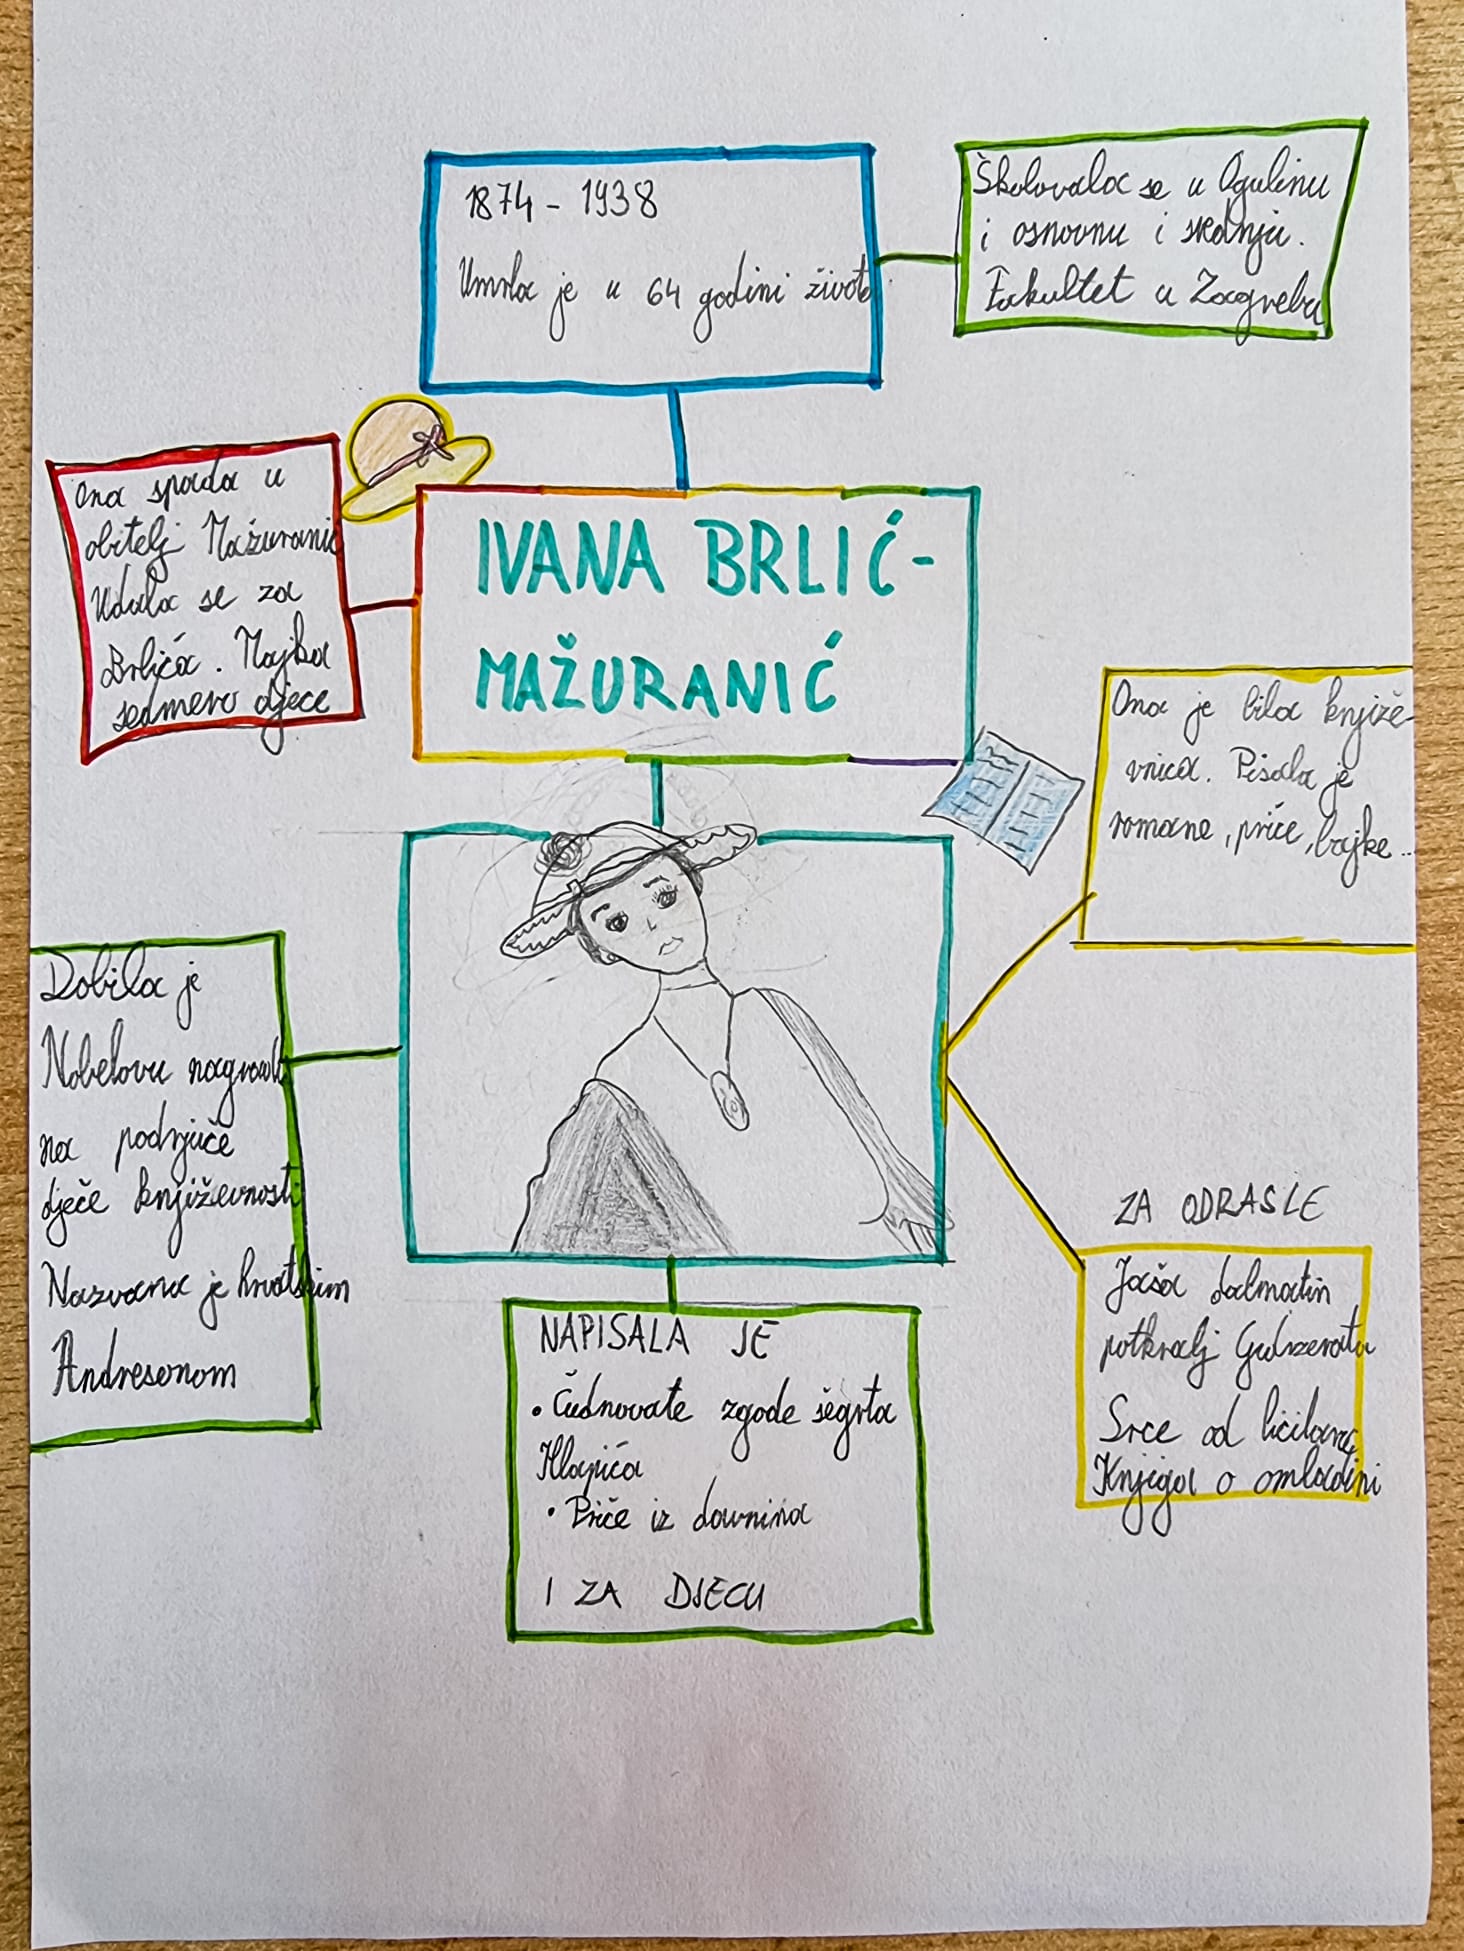 1874 - 1938
Umrla je u 64 godini života
Školovala se u Ogulinu
i osnovnu i srednju.
Fakultet u Zagrebu
Ona spada u
obitelj Mažuranić
Udala se za
Brlića. Majka
sedmero djece
IVANA BRLIĆ-
MAŽURANIĆ
Ona je bila knjiže-
vnica. Pisala je
romane, priče, bajke...
Dobila je
Nobelovu nagradu
na području
dječe književnosti
Nazvana je hrvatskim
Andresonom
ZA ODRASLE
Jaša dalmatin
potkralj Gudzerata
Srce od licitara
Knjiga o omladini
NAPISALA JE
• Čudnovate zgode šegrta
Hlapića
• Priče iz davnina
I ZA DJECU